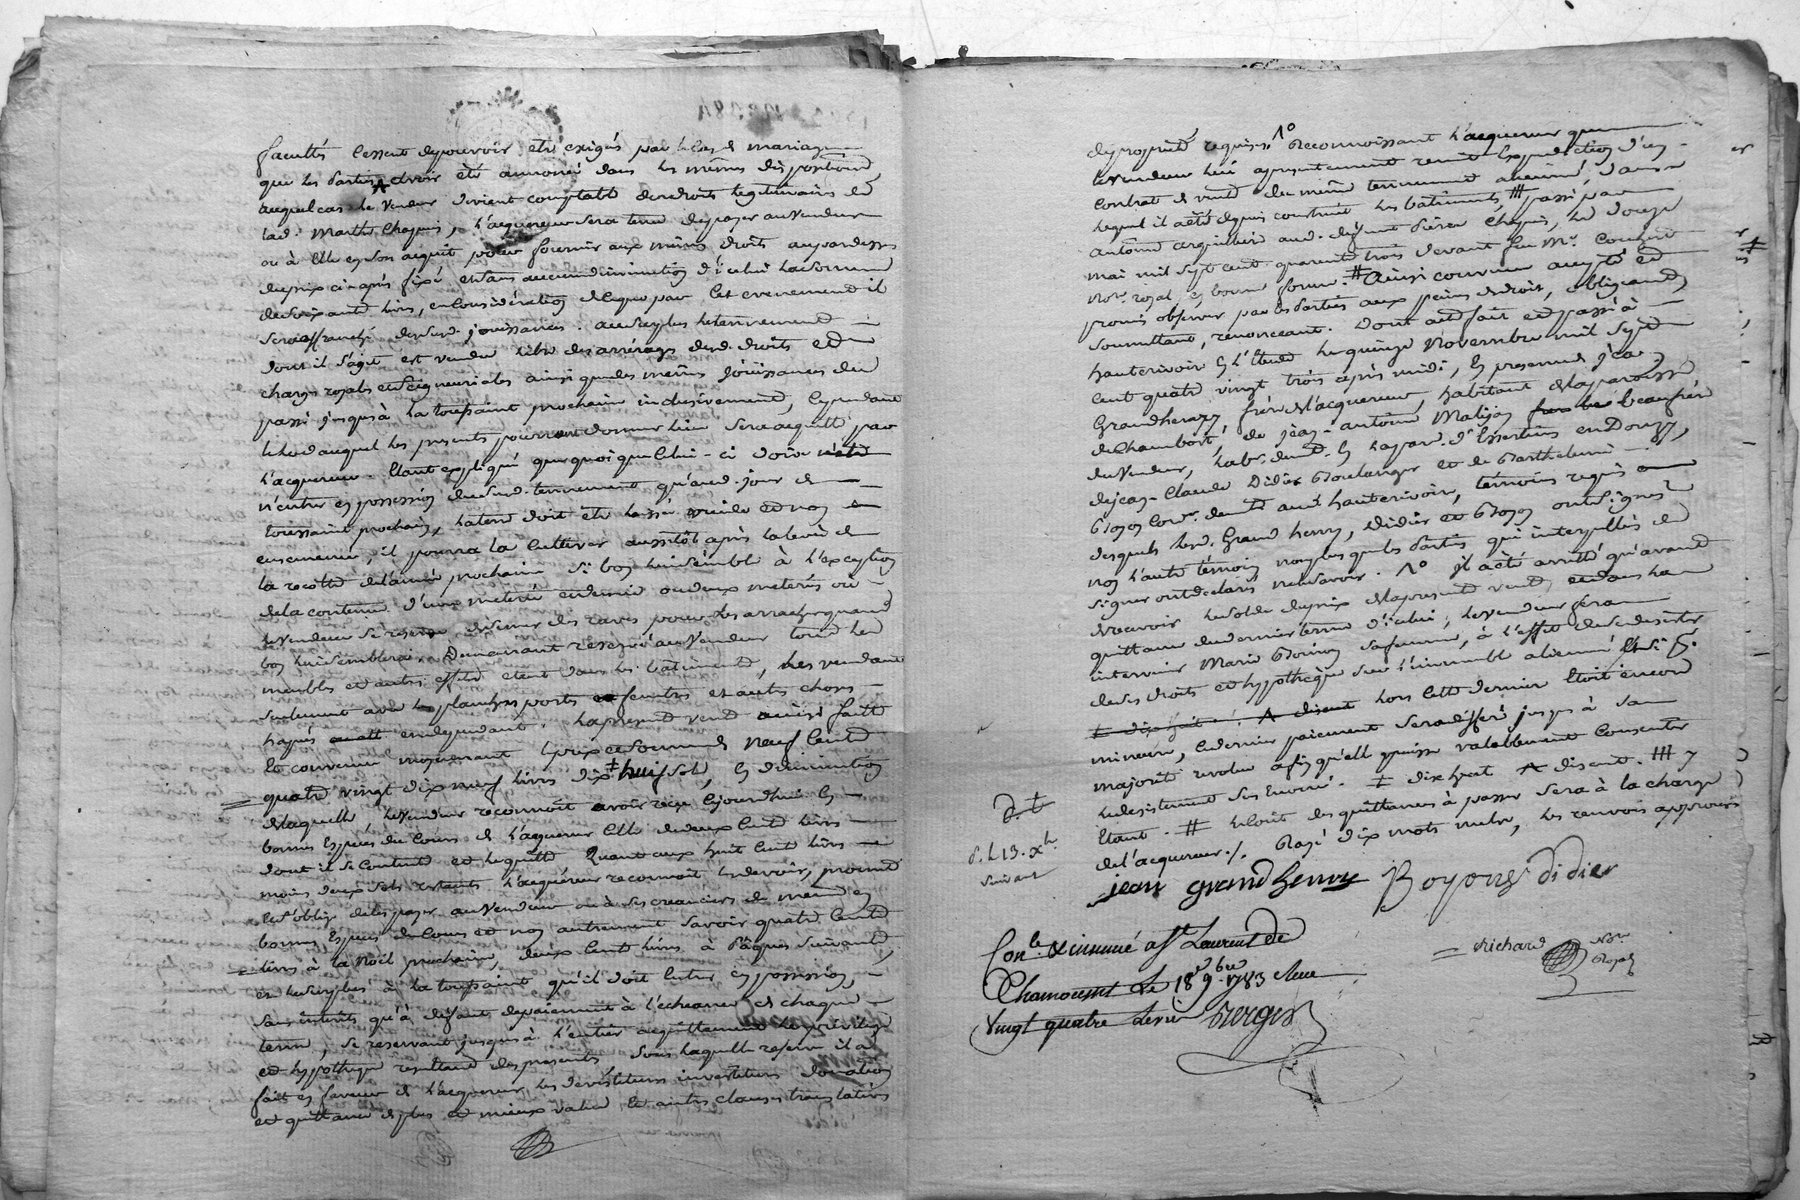 facultés cessent de pouvoir etre exigés par led. mariage
que les parties ʌ avoir été annoncé dans les mêmes dispositions,
auquel cas le vendeur devient comptable des droits legitimaires de
lad. Marthe Chapuis, l'acquereur sera tenu de payer au vendeur
ou à elle en son acquit pour fournir aux mêmes droits au par dessus
du prix ci après fixé et sans aucune diminution d'icelui la somme
de soixante livres, en considération de ce que par cet evenement il
sera affranchi desd. jouissances. au surplus le tennement
dont il s'agit est vendu libre des arrérages desd. droits et
charges royales et seigneuriales ainsi que des mêmes jouissances du
passé jusqu'à la toussaint prochaine inclusivement, cependant
le lod auquel les presents pourront donner lieu sera acquitté par
l'acquereur. Etant expliqué que quoique celui-ci doive
n'entrer en possession dud. tennement qu'aud. jour de
toussaint prochain, la terre doit être laissée vuide et non
ensemencée, il pourra la cultiver aussitôt après la levée de
la recolte de l'année prochaine si bon lui semble à l'exception
de la contenue d'une meterée et demie ou deux meterées où
le vendeur se reserve de semer des raves pour les arracher quand
bon lui semblera. Demeurant reservé au vendeur tous les
meubles et autres effets etant dans les batiments, les vendant
seulement avec les planchers portes et fenetres et autres choses
en dependant. la presente vente ainsi faite
et convenue moyennant le prix et somme de neuf cent
quatre vingt dix neuf livres dix ‡ huit sols, en diminution
de laquelle le vendeur reconnoit avoir reçu cejourd'hui en
bonnes espéces du cours de l'acquereur celle de deux cent livres
dont il se contente et le quitte. Quant aux sept cent livres
moins deux sols restants l'acquéreur reconnoit les devoir, promet
et s'oblige de les payer au vendeur ou à ses creanciers de même en
bonnes espéces de cours et non autrement savoir quatre cent
livres à la noël prochaine, deux cent livres à Pâques suivant,
et le surplus à la toussaint qu'il doit entrer en possession,
sans interêts qu'à défaut de paiement à l'echeance de chaque
terme, se reservant jusques à l'entier acquittement le privilége
et hypotheque resultant des presentes sous laquelle reserve il a
fait en faveur de l'acquereur les devestitures investitures donation
et quittance de plus et mieux value et autres clauses translatives
de propriété requises. 1° Reconnoissant l'acquereur que
le vendeur lui a presentement remis l'expedition d'un
contrat de vente du même tennement aliené, dans
lequel il a été depuis construit les bâtiments, ⧻ passé par
antoine arquillière aud. défunt Pierre Chapuis, le douze
mai mil sept cent quarante trois devant feu Me. Couvert
Nore. royal, en bonne forme. # Ainsi convenu accepté et
promis observer par les parties aux peines de droit, obligeant,
soumettant, renonceant. Dont acte fait et passé à
hauterivoire en l'etude le quinze Novembre mil sept
cent quatre vingt trois après midi, en presence de jean
Grandhenry frère de l'acquereur, habitant de la paroisse
de chambost, de jean-antoine Maligan beaufrère
du vendeur, labr. demt. en la par. d'Essertines en Donzy,
de jean-Claude Didier Boulanger et de Barthelemi
Boyon cordr. demts. aud. hauterivoire, temoins requis
desquels lesd. Grand henry, Didier et Boyon ont signé,
non l'autre témoin non plus que les parties qui interpellés de
signer ont declaré ne le savoir. 1° Il a été arretté qu'avant
de recevoir le solde du prix de la presente vente, et dans la
quittance du dernier terme d'icelui, le vendeur fera
intervenir Marie Boiron sa femme, à l'effet de se desister
de ses droits et hypothèque sur l'immeuble aliené
ʌ disent hors cette derniere etoit encore
mineure, le dernier paiement sera differé jusques à sa
majorité revolue afin qu'elle puisse valablement consentir
le desistement sus enoncé. ‡ dix huit ʌ disent. ⧻ y
etant. # le cout des quittances à passer sera à la charge
de l'acquereur ./. Rayé dix mots nuls, les renvois approuvés
jean grand henry Boyon didier
Richard Nore Royal
s. L 13. xbre
suivant
Conle. & insinué a St Laurent de
Chamousset le 18e 9bre 1783 Reçu
vingt quatre livres Berger